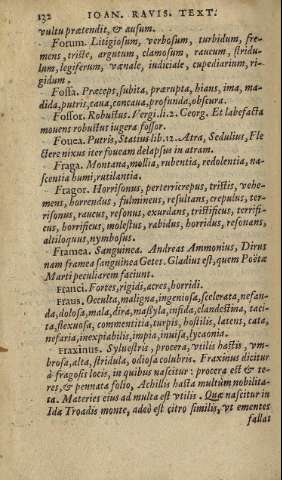 132 IOAN. RAVIS. TEXT.
vultu prætendit, & ausum.
Forum. Litigiosum, verbosum, turbidum, fre-
mens, triste, argutum, clamosum, raucum, stridu-
lum, legiferum, vænale, iudiciale, cupediarium, ri-
gidum.
Fossa. Præceps, subita, prærupta, hians, ima, ma-
dida, putris, caua, concaua, profunda, obscura.
Fossor. Robustus. Vergi. li. 2. Georg. Et labefacta
mouens robustus iugera fossor.
Fouea. Putris, Statius lib. 12. Atra, Sedulius, Fle
ctere nixus iter foueam delapsus in atram.
Fraga. Montana, mollia, rubentia, redolentia, na-
scentia humi, rutilantia.
Fragor. Horrisonus, perterricrepus, tristis, vehe-
mens, horrendus, fulmineus, resultans, crepulus, ter-
risonus, raucus, resonus, exurdans, tristificus, terrifi-
cus, horrificus, molestus, rabidus, horridus, resonans,
altiloquus, nymbosus.
Framea. Sanguinea. Andreas Ammonius, Dirus
nam framea sanguinea Getes. Gladius est, quem Poëtæ
Marti peculiarem faciunt.
Franci. Fortes, rigidi, acres, horridi.
Fraus. Occulta, maligna, ingeniosa, scelerata, nefan-
da, dolosa, mala, dira, maßyla, infida, clandestina, taci-
ta, flexuosa, commentitia, turpis, hostilis, latens, cæca,
nefaria, inexpiabilis, impia, inuisa, lycaonia.
Fraxinus. Syluestris, procera, vtilis hastis, vm-
brosa, alta, stridula, odiosa colubris. Fraxinus dicitur
à fragosis locis, in quibus nascitur: procera est & te-
res, & pennata folio, Achillis hasta multùm nobilita-
ta. Materies eius ad multa est vtilis. Quæ nascitur in
Ida Troadis monte, adeò est citro similis, vt ementes
fallat